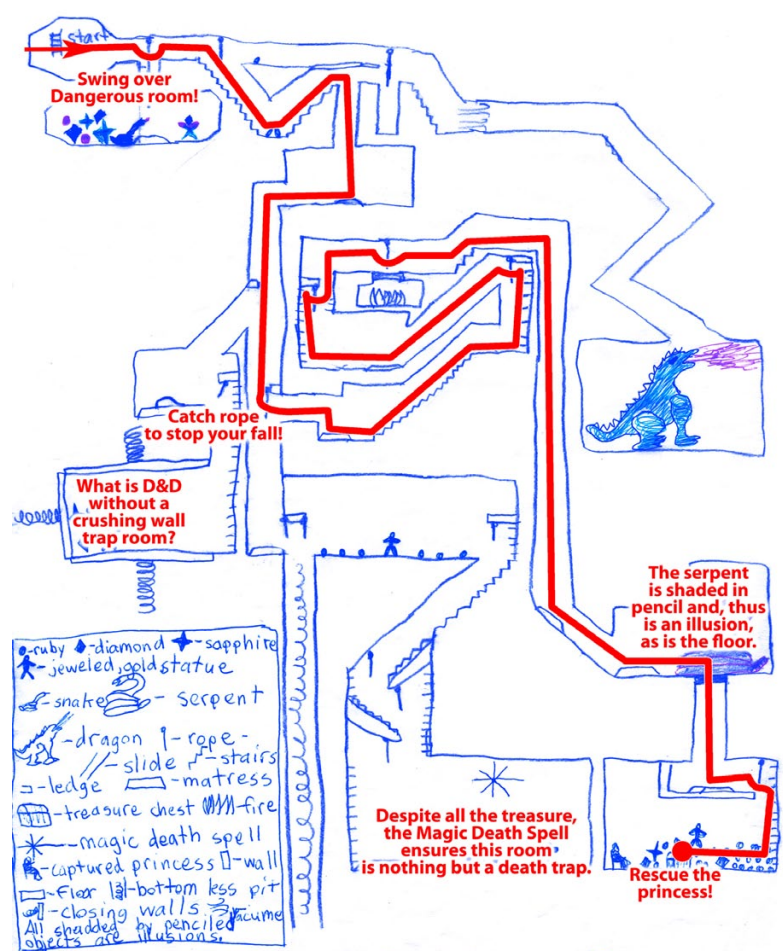 start
Swing over
Dangerous room!
Catch rope
to stop your fall!
What is D&D
without a
crushing wall
trap room?
The serpent
is shaded in
pencil and, thus
is an illusion,
as is the floor.
Despite all the treasure,
the Magic Death Spell
ensures this room
is nothing but a death trap.
Rescue the
princess!
-ruby -diamond -sapphire
-jeweled, gold statue
-snake - serpent
-dragon -rope-
-slide -stairs
-ledge -matress
-treasure chest -fire
-magic death spell
-captured princess -wall
-floor -bottom less pit
-closing walls
All shadded by penciled
objects are illusions.